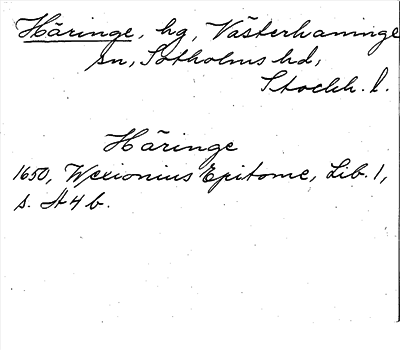 Häringe, hg, Västerhaninge
sn, Sotholms hd,
Stockh. l.
Häringe
1650, Wexionius Epitome, Lib. 1,
s. A4 b.